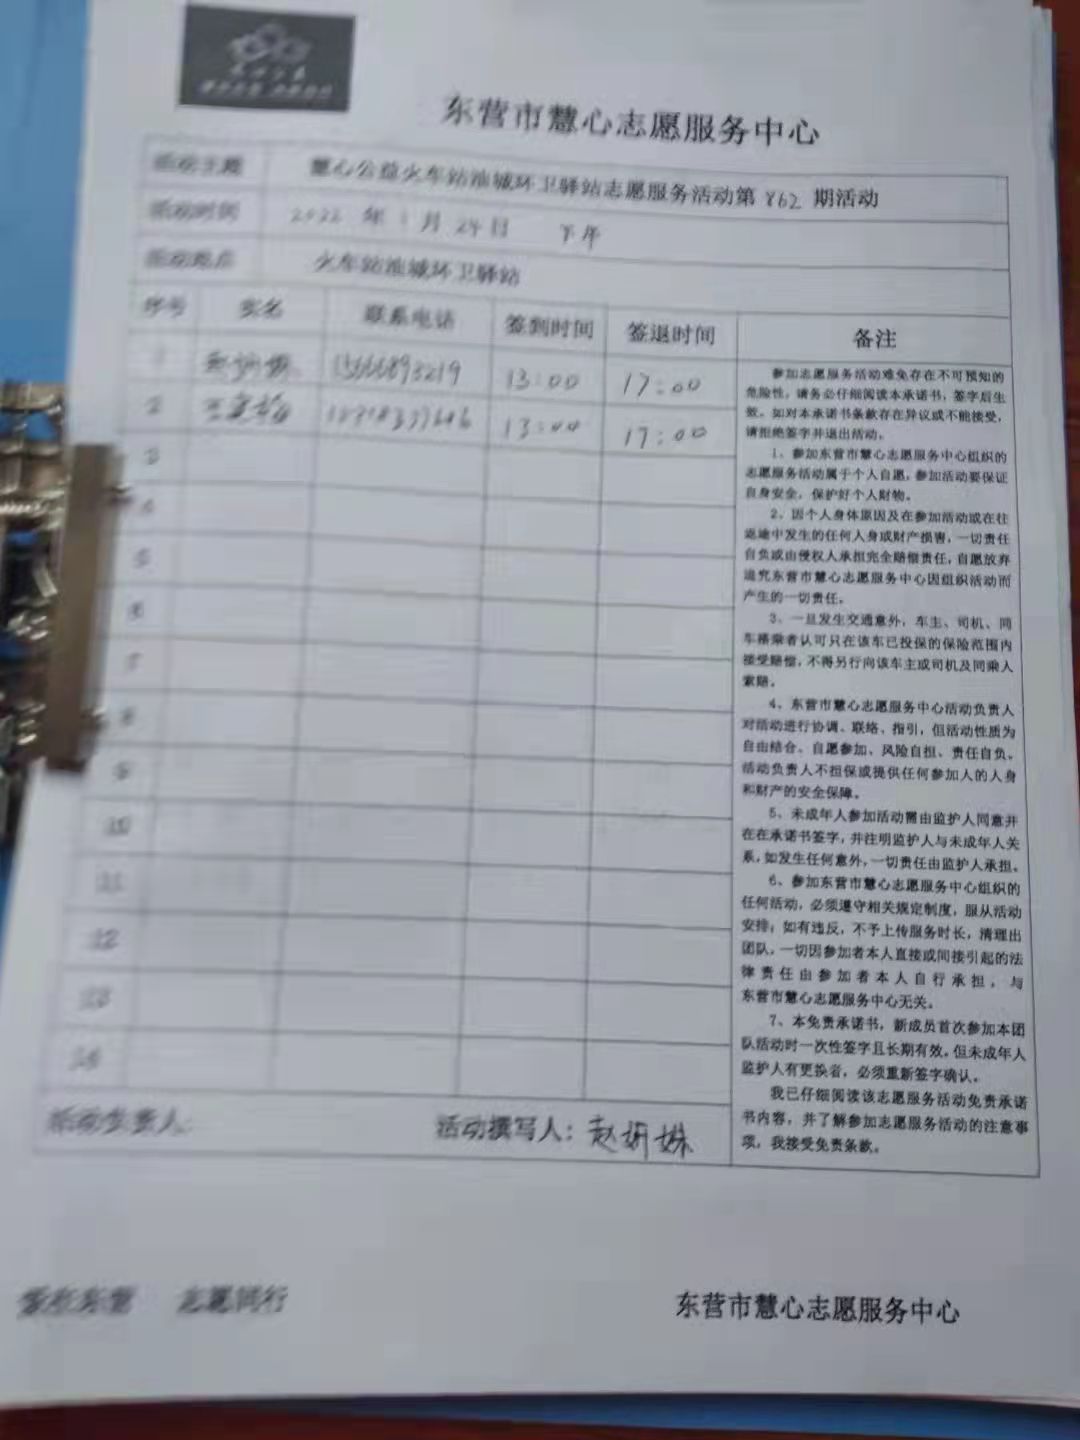 东营市慧心志愿服务中心
活动主题 慧心公益火车站油城环卫驿站志愿服务活动第 862 期活动
活动时间 2022 年 1 月 24 日 下午
活动地点 火车站油城环卫驿站
序号 实名 联系电话 签到时间 签退时间 备注
1 赵妍姝 15666893219 13:00 17:00
2 13:00 17:00
3
4
5
6
7
8
9
10
11
12
13
14
参加志愿服务活动难免存在不可预知的
危险性，请务必仔细阅读本承诺书，签字后生
效。如对本承诺书条款存在异议或不能接受，
请拒绝签字并退出活动。
1、参加东营市慧心志愿服务中心组织的
志愿服务活动属于个人自愿，参加活动要保证
自身安全，保护好个人财物。
2、因个人身体原因及在参加活动或在往
返途中发生的任何人身或财产损害，一切责任
自负或由侵权人承担完全赔偿责任，自愿放弃
追究东营市慧心志愿服务中心因组织活动而
产生的一切责任。
3、一旦发生交通意外，车主、司机、同
车搭乘者认可只在该车已投保的保险范围内
接受赔偿，不得另行向该车主或司机及同乘人
索赔。
4、东营市慧心志愿服务中心活动负责人
对活动进行协调、联络、指引，但活动性质为
自由结合、自愿参加、风险自担、责任自负。
活动负责人不担保或提供任何参加人的人身
和财产的安全保障。
5、未成年人参加活动需由监护人同意并
在在承诺书签字，并注明监护人与未成年人关
系，如发生任何意外，一切责任由监护人承担。
6、参加东营市慧心志愿服务中心组织的
任何活动，必须遵守相关规定制度，服从活动
安排；如有违反，不予上传服务时长，清理出
团队，一切因参加者本人直接或间接引起的法
律责任由参加者本人自行承担，与
东营市慧心志愿服务中心无关。
7、本免责承诺书，新成员首次参加本团
队活动时一次性签字且长期有效，但未成年人
监护人有更换者，必须重新签字确认。
我已仔细阅读该志愿服务活动免责承诺
书内容，并了解参加志愿服务活动的注意事
项，我接受免责条款。
活动负责人: 活动撰写人：赵妍姝
爱在东营 志愿同行 东营市慧心志愿服务中心